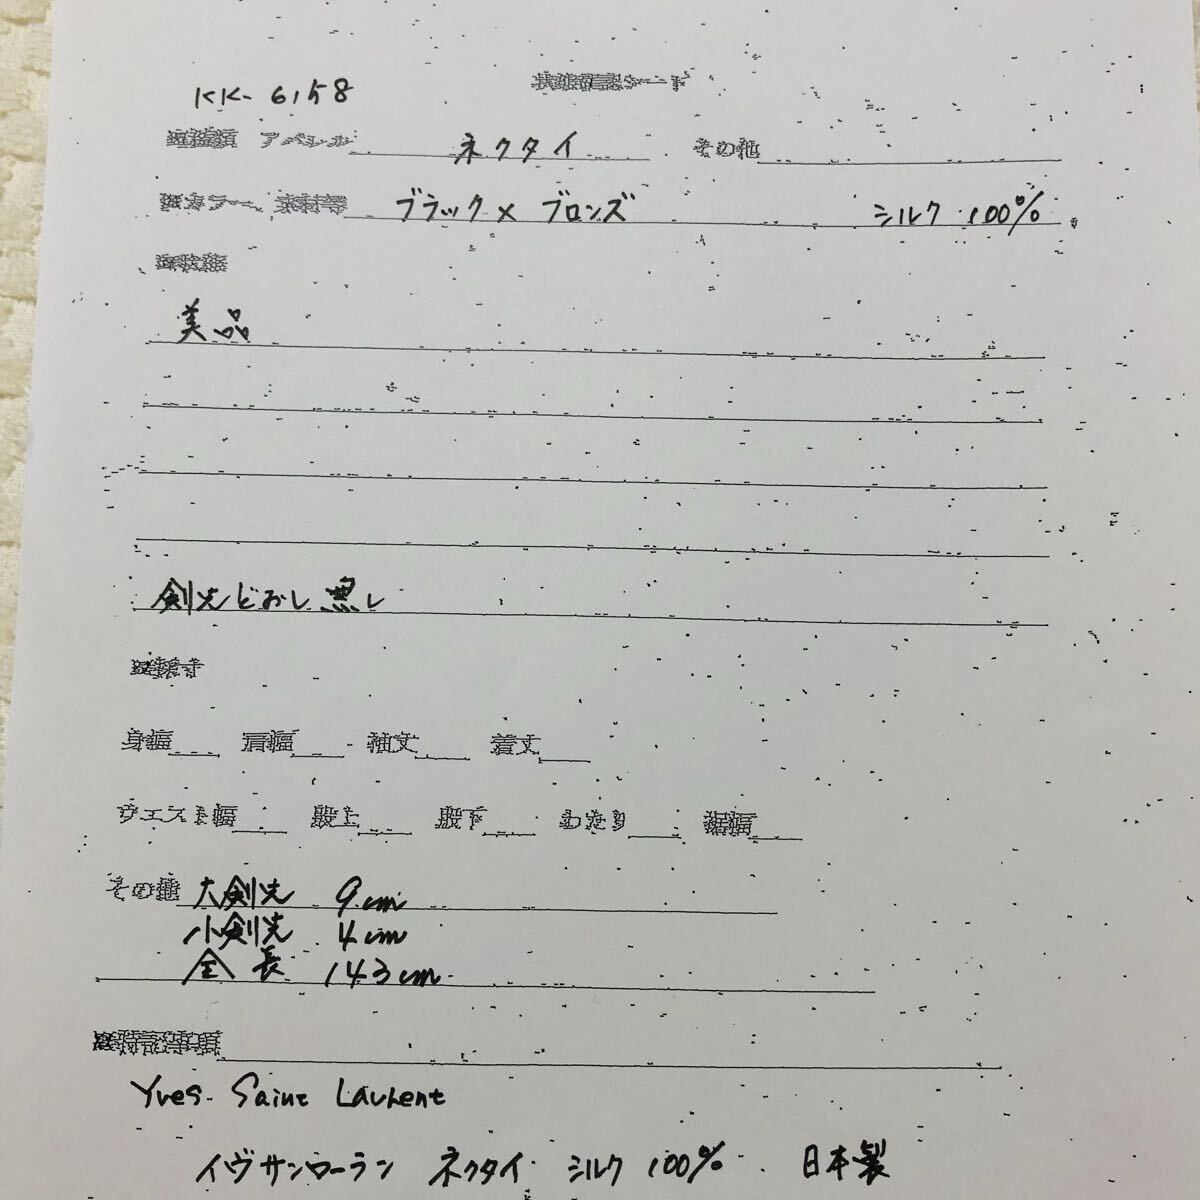 状態確認シート
KK-6158
アパレル ネクタイ その他
カラー、素材等 ブラック×ブロンズ シルク 100%
状態
美品
剣先どおし無し
採寸
身幅 肩幅 袖丈 着丈
ウエスト幅 股上 股下 わたり 裾幅
その他 大剣先 9cm
小剣先 4cm
全長 143cm
特記事項
Yves Saint Laurent
イヴサンローラン ネクタイ シルク 100% 日本製